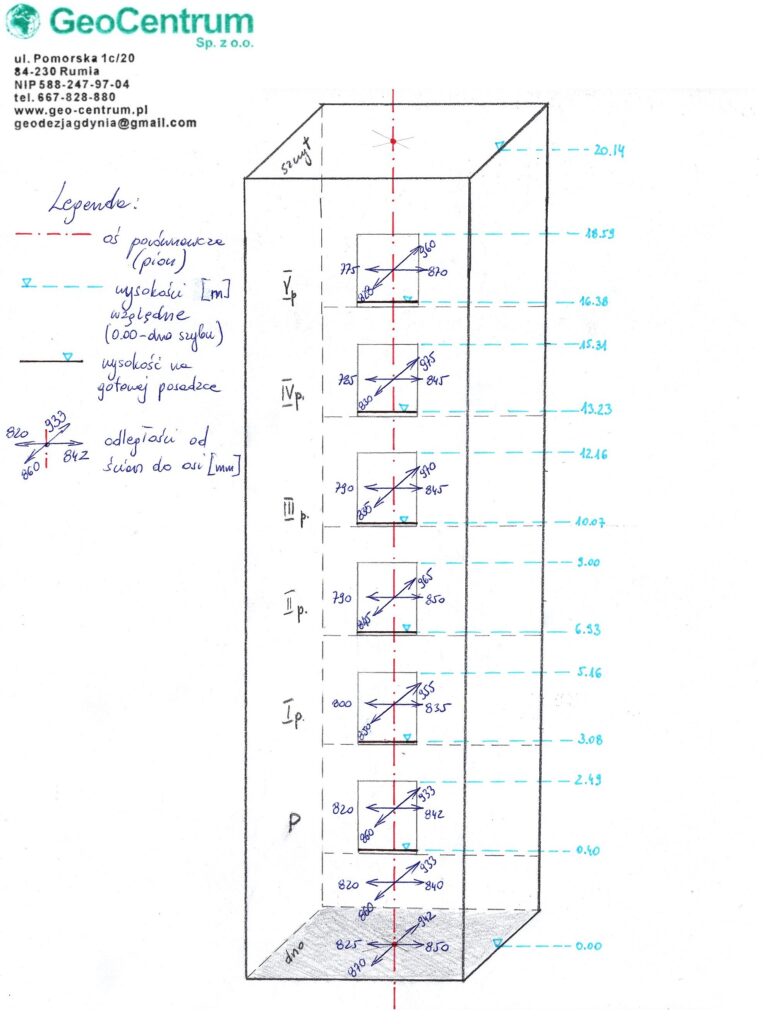 GeoCentrum
Sp. z o.o.
ul. Pomorska 1c/20
84-230 Rumia
NIP 588-247-97-04
tel. 667-828-880
www.geo-centrum.pl
geodezjagdynia@gmail.com
Legenda:
oś porównawcza
(pion)
wysokości [m]
względne
(0.00-dno szybu)
wysokość na
gotowej posadzce
820 933
860 842
odległości od
ścian do osi [mm]
szczyt
20.14
18.59
960
775 870
V p
820
16.38
15.31
975
785 845
IV p.
830
13.23
12.16
970
790 845
III p.
835
10.07
9.00
965
790 850
II p.
845
6.93
5.16
955
800 835
I p.
850
3.08
2.49
933
820 842
P
860
0.40
933
820 840
860
942
825 850
0.00
dno
870